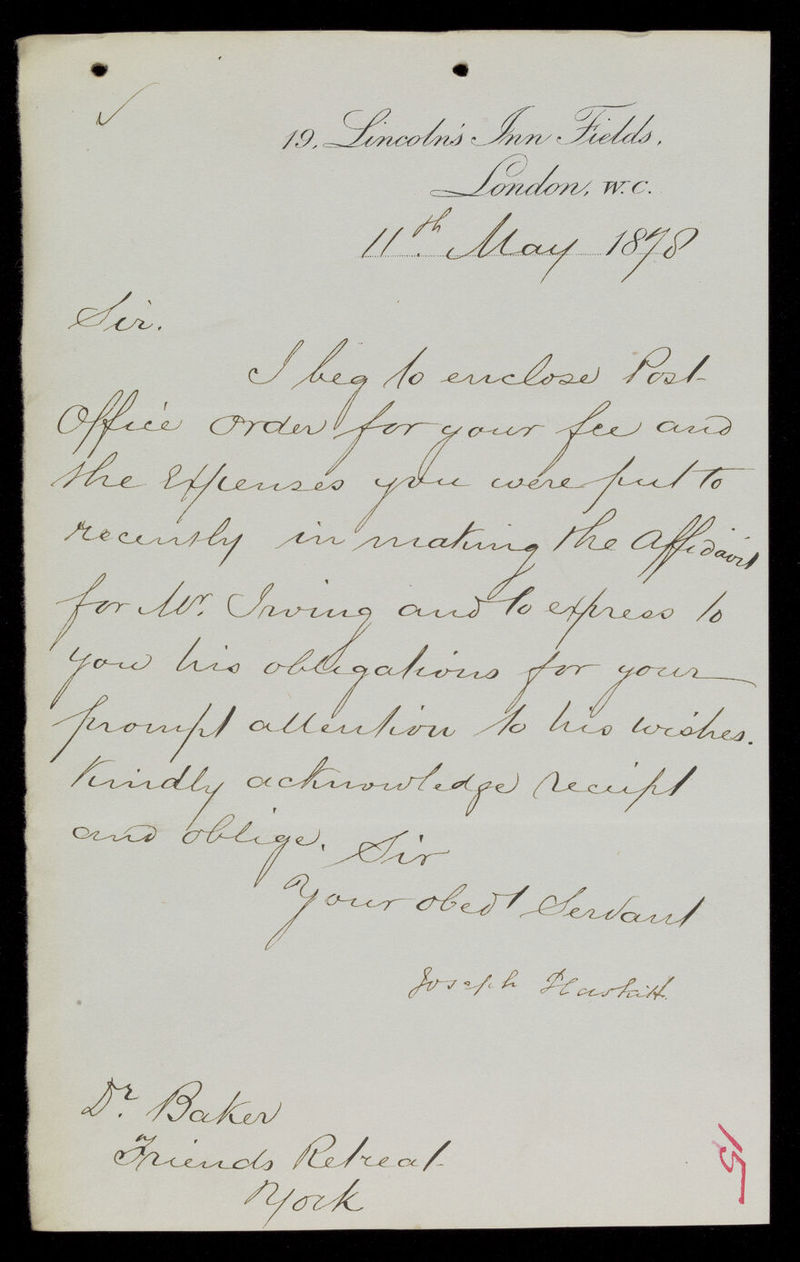 19, Lincoln's Inn Fields,
London, W.C.
11th. May 1878
Sir.
I beg to enclose Post
Office order for your fee and
the Expenses you were put to
recently in making the Affidavit
for Mr. Irving and to express to
you his obligations for your
prompt attention to his wishes.
Kindly acknowledge receipt
and oblige. Sir
Your obedt Servant
Joseph
Dr. Baker
Friends Retreat
York
15